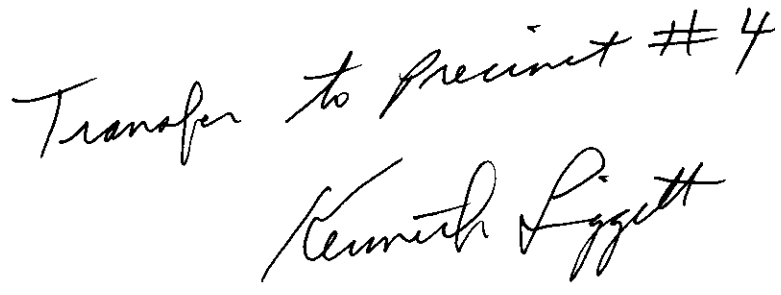 Transfer to Precinct #4
Kenneth Liggett